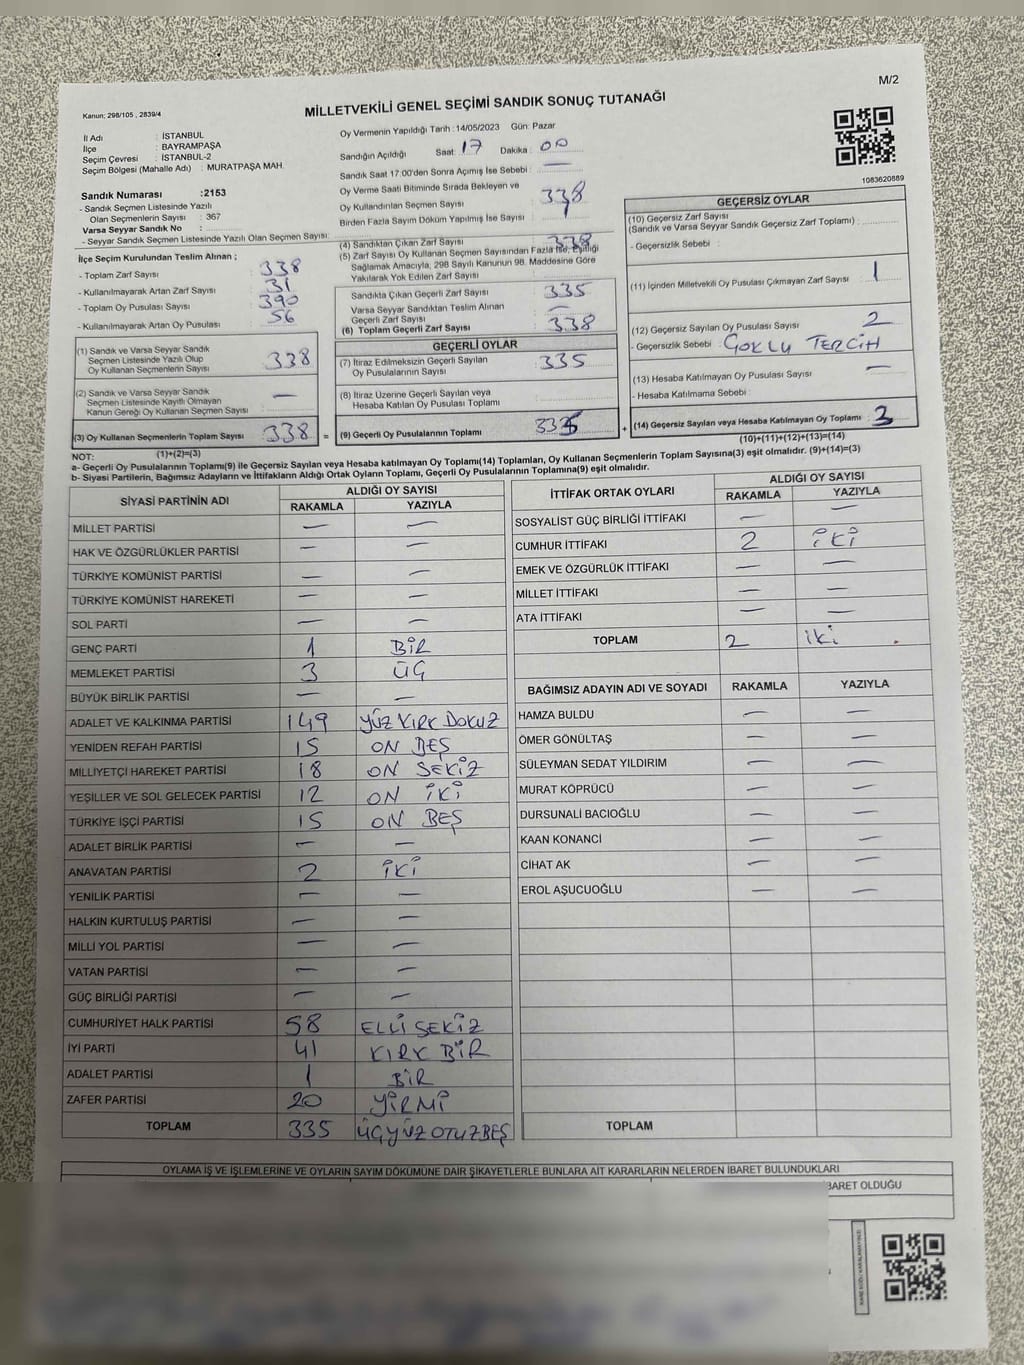 M/2
Kanun: 298/105 , 2839/4
MİLLETVEKİLİ GENEL SEÇİMİ SANDIK SONUÇ TUTANAĞI
İl Adı : İSTANBUL
İlçe : BAYRAMPAŞA
Seçim Çevresi : İSTANBUL-2
Seçim Bölgesi (Mahalle Adı) : MURATPAŞA MAH.
Sandık Numarası :2153
- Sandık Seçmen Listesinde Yazılı
Olan Seçmenlerin Sayısı : 367
Varsa Seyyar Sandık No :
- Seyyar Sandık Seçmen Listesinde Yazılı Olan Seçmen Sayısı:
Oy Vermenin Yapıldığı Tarih :14/05/2023 Gün: Pazar
Sandığın Açıldığı Saat: 17 Dakika : 00
Sandık Saat 17:00'den Sonra Açılmış İse Sebebi : —
Oy Verme Saati Bitiminde Sırada Bekleyen ve
Oy Kullandırılan Seçmen Sayısı : 338
Birden Fazla Sayım Döküm Yapılmış İse Sayısı : 1
1083620889
İlçe Seçim Kurulundan Teslim Alınan ;
- Toplam Zarf Sayısı : 338
- Kullanılmayarak Artan Zarf Sayısı : 31
- Toplam Oy Pusulası Sayısı : 390
- Kullanılmayarak Artan Oy Pusulası : 56
(1) Sandık ve Varsa Seyyar Sandık
Seçmen Listesinde Yazılı Olup
Oy Kullanan Seçmenlerin Sayısı : 338
(2) Sandık ve Varsa Seyyar Sandık
Seçmen Listesinde Kayıtlı Olmayan
Kanun Gereği Oy Kullanan Seçmen Sayısı : —
(3) Oy Kullanan Seçmenlerin Toplam Sayısı : 338 =
(1)+(2)=(3)
(4) Sandıktan Çıkan Zarf Sayısı : 338
(5) Zarf Sayısı Oy Kullanan Seçmen Sayısından Fazla İse, Eşitliği
Sağlamak Amacıyla, 298 Sayılı Kanunun 98. Maddesine Göre
Yakılarak Yok Edilen Zarf Sayısı :
Sandıkta Çıkan Geçerli Zarf Sayısı : 335
Varsa Seyyar Sandıktan Teslim Alınan
Geçerli Zarf Sayısı : —
(6) Toplam Geçerli Zarf Sayısı : 338
GEÇERLİ OYLAR
(7) İtiraz Edilmeksizin Geçerli Sayılan
Oy Pusulalarının Sayısı : 335
(8) İtiraz Üzerine Geçerli Sayılan veya
Hesaba Katılan Oy Pusulası Toplamı :
(9) Geçerli Oy Pusulalarının Toplamı : 335 +
GEÇERSİZ OYLAR
(10) Geçersiz Zarf Sayısı
(Sandık ve Varsa Seyyar Sandık Geçersiz Zarf Toplamı) :
- Geçersizlik Sebebi :
(11) İçinden Milletvekili Oy Pusulası Çıkmayan Zarf Sayısı : 1
(12) Geçersiz Sayılan Oy Pusulası Sayısı : 2
- Geçersizlik Sebebi : ÇOKLU TERCİH
(13) Hesaba Katılmayan Oy Pusulası Sayısı : —
- Hesaba Katılmama Sebebi :
(14) Geçersiz Sayılan veya Hesaba Katılmayan Oy Toplamı : 3
(10)+(11)+(12)+(13)=(14)
NOT:
a- Geçerli Oy Pusulalarının Toplamı(9) ile Geçersiz Sayılan veya Hesaba katılmayan Oy Toplamı(14) Toplamları, Oy Kullanan Seçmenlerin Toplam Sayısına(3) eşit olmalıdır. (9)+(14)=(3)
b- Siyasi Partilerin, Bağımsız Adayların ve İttifakların Aldığı Ortak Oyların Toplamı, Geçerli Oy Pusulalarının Toplamına(9) eşit olmalıdır.
SİYASİ PARTİNİN ADI ALDIĞI OY SAYISI
RAKAMLA YAZIYLA
MİLLET PARTİSİ — —
HAK VE ÖZGÜRLÜKLER PARTİSİ — —
TÜRKİYE KOMÜNİST PARTİSİ — —
TÜRKİYE KOMÜNİST HAREKETİ — —
SOL PARTİ — —
GENÇ PARTİ 1 BİR
MEMLEKET PARTİSİ 3 ÜÇ
BÜYÜK BİRLİK PARTİSİ — —
ADALET VE KALKINMA PARTİSİ 149 YÜZ KIRK DOKUZ
YENİDEN REFAH PARTİSİ 15 ON BEŞ
MİLLİYETÇİ HAREKET PARTİSİ 18 ON SEKİZ
YEŞİLLER VE SOL GELECEK PARTİSİ 12 ON İKİ
TÜRKİYE İŞÇİ PARTİSİ 15 ON BEŞ
ADALET BİRLİK PARTİSİ — —
ANAVATAN PARTİSİ 2 İKİ
YENİLİK PARTİSİ — —
HALKIN KURTULUŞ PARTİSİ — —
MİLLİ YOL PARTİSİ — —
VATAN PARTİSİ — —
GÜÇ BİRLİĞİ PARTİSİ — —
CUMHURİYET HALK PARTİSİ 58 ELLİ SEKİZ
İYİ PARTİ 41 KIRK BİR
ADALET PARTİSİ 1 BİR
ZAFER PARTİSİ 20 YİRMİ
TOPLAM 335 ÜÇYÜZ OTUZBEŞ
İTTİFAK ORTAK OYLARI ALDIĞI OY SAYISI
RAKAMLA YAZIYLA
SOSYALİST GÜÇ BİRLİĞİ İTTİFAKI — —
CUMHUR İTTİFAKI 2 İKİ
EMEK VE ÖZGÜRLÜK İTTİFAKI — —
MİLLET İTTİFAKI — —
ATA İTTİFAKI — —
TOPLAM 2 İKİ
BAĞIMSIZ ADAYIN ADI VE SOYADI RAKAMLA YAZIYLA
HAMZA BULDU — —
ÖMER GÖNÜLTAŞ — —
SÜLEYMAN SEDAT YILDIRIM — —
MURAT KÖPRÜCÜ — —
DURSUNALİ BACIOĞLU — —
KAAN KONANCİ — —
CİHAT AK — —
EROL AŞUCUOĞLU — —
TOPLAM
OYLAMA İŞ VE İŞLEMLERİNE VE OYLARIN SAYIM DÖKÜMÜNE DAİR ŞİKAYETLERLE BUNLARA AİT KARARLARIN NELERDEN İBARET BULUNDUKLARI
BARET OLDUĞU
KARE KODU KARALAMAYINIZ!